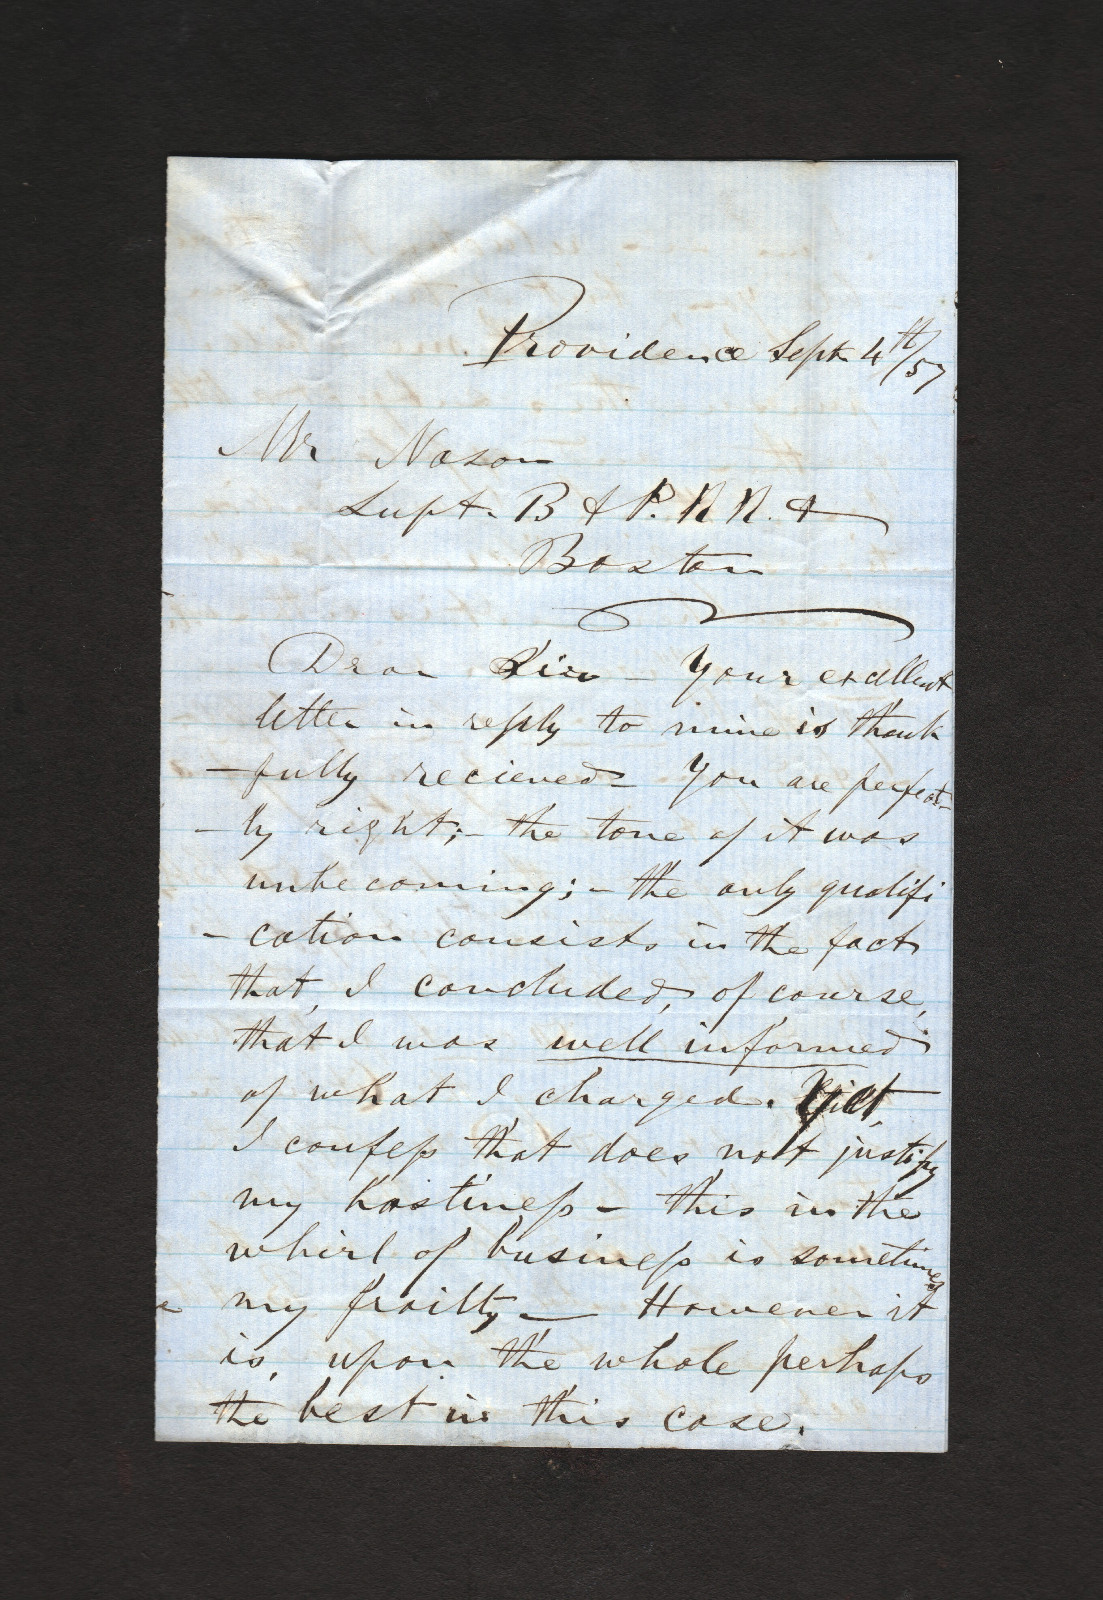 Providence Sept. 4th/57
Mr Nason
Supt. B & P. R R. &
Boston
Dear Sir – Your excellent
letter in reply to mine is thank
-fully recieved – You are perfect-
-ly right; – the tone of it was
unbecoming; – the only qualifi
-cation consists in the fact
that, I concluded, of course,
that I was well informed
of what I charged. Yet
I confess that does not justify
my hastiness – this in the
whirl of business is sometimes
my frailty – However it
is, upon the whole perhaps
the best in this case.